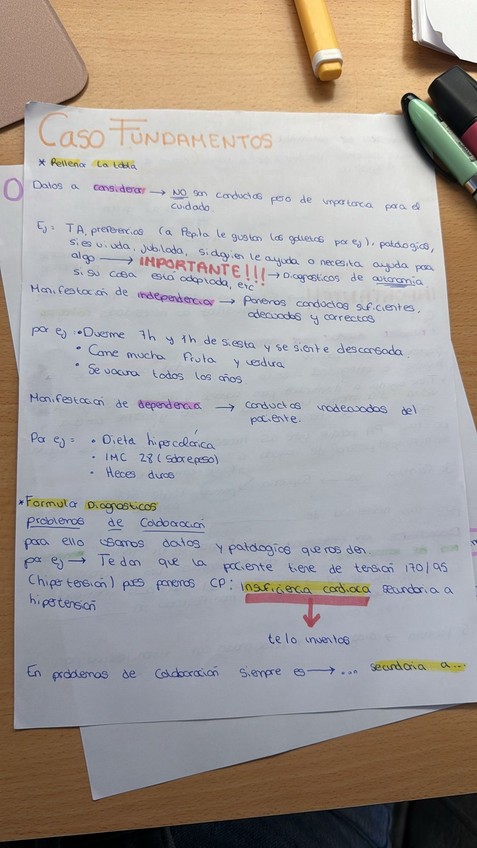 CASO FUNDAMENTOS
* Rellenar la tabla
Datos a considerar → NO son conductas pero de importancia para el
cuidado.
Ej: TA, preferencias (a Pepita le gustan las galletas por ej), patologías,
si es viuda, jubilada, si alguien le ayuda o necesita ayuda para
algo → IMPORTANTE!!! → Diagnosticos de autonomía
si su casa está adaptada, etc
Manifestación de independencia → Ponemos conductas suficientes,
adecuadas y correctas
por ej: • Duerme 7h y 1h de siesta y se siente descansada.
• Come mucha fruta y verdura
• Se vacuna todos los años.
Manifestación de dependencia → conductas inadecuadas del
paciente.
Por ej: • Dieta hipercalórica
• IMC 28 (sobrepeso)
• Heces duras
* Formular Diagnosticos
problemas de Colaboración
para ello usamos datos y patologías que nos den
por ej → Te dan que la paciente tiene de tensión 170/95
(hipertensión) pues ponemos CP: Insuficiencia cardiaca secundaria a
hipertensión
te lo inventas
En problemas de colaboración siempre es → ... secundaria a...